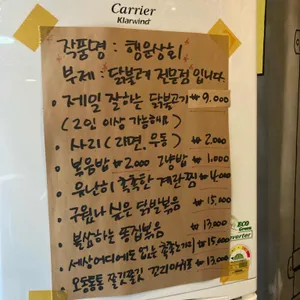 Carrier
Klarwind
작품명 : 행운상회
부제 : 닭불고기 전문점 입니다.
· 제일 잘하는 닭불고기 ₩9,000
(2인 이상 가능해요)
· 사리 (라면, 우동) ₩2000
· 볶음밥 ₩2000 공기밥 ₩1,000
· 유난히 촉촉한 계란찜 ₩4,000
· 구웠나 싶은 닭발볶음 ₩15,000
· 불삼하는 똥집볶음 ₩13,000
· 세상어디에도 없는 쪽쪽눈키 ₩15,000
· 오동통통 쫄깃쫄깃 꼬리아귀포 ₩13,000
ECO